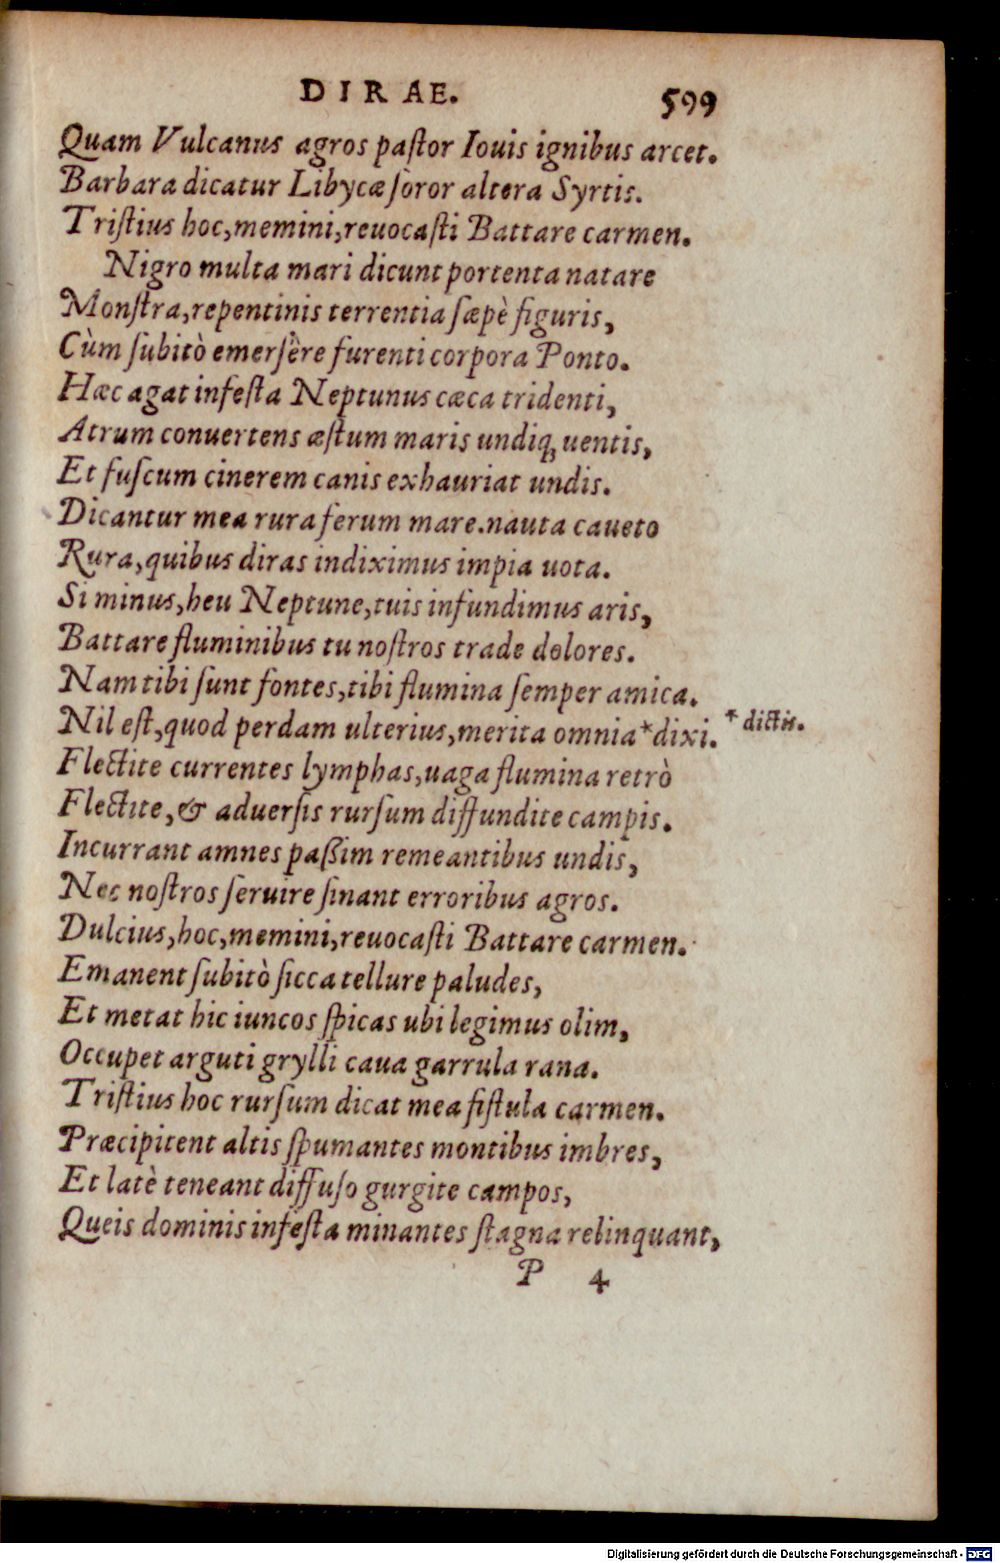 DIRAE. 599
Quam Vulcanus agros paſtor Iouis ignibus arcet.
Barbara dicatur Libycæ ſoror altera Syrtis.
Triſtius hoc, memini, reuocaſti Battare carmen.
Nigro multa mari dicunt portenta natare
Monſtra, repentinis terrentia ſæpè figuris,
Cùm ſubitò emerſêre furenti corpora Ponto.
Hæc agat infeſta Neptunus cæca tridenti,
Atrum conuertens æſtum maris undiq; uentis,
Et fuſcum cinerem canis exhauriat undis.
Dicantur mea rura ferum mare. nauta caueto
Rura, quibus diras indiximus impia uota.
Si minus, heu Neptune, tuis infundimus aris,
Battare fluminibus tu noſtros trade dolores.
Nam tibi ſunt fontes, tibi flumina ſemper amica.
Nil eſt, quod perdam ulterius, merita omnia * dixi. * dictis.
Flectite currentes lymphas, uaga flumina retrò
Flectite, & aduerſis rurſum diffundite campis.
Incurrant amnes paßim remeantibus undis,
Nec noſtros ſeruire ſinant erroribus agros.
Dulcius, hoc, memini, reuocaſti Battare carmen.
Emanent ſubitò ſicca tellure paludes,
Et metat hic iuncos ſpicas ubi legimus olim,
Occupet arguti grylli caua garrula rana.
Triſtius hoc rurſum dicat mea fiſtula carmen.
Præcipitent altis ſpumantes montibus imbres,
Et latè teneant diffuſo gurgite campos,
Queis dominis infeſta minantes ſtagna relinquant,
P 4
Digitalisierung gefördert durch die Deutsche Forschungsgemeinschaft - DFG